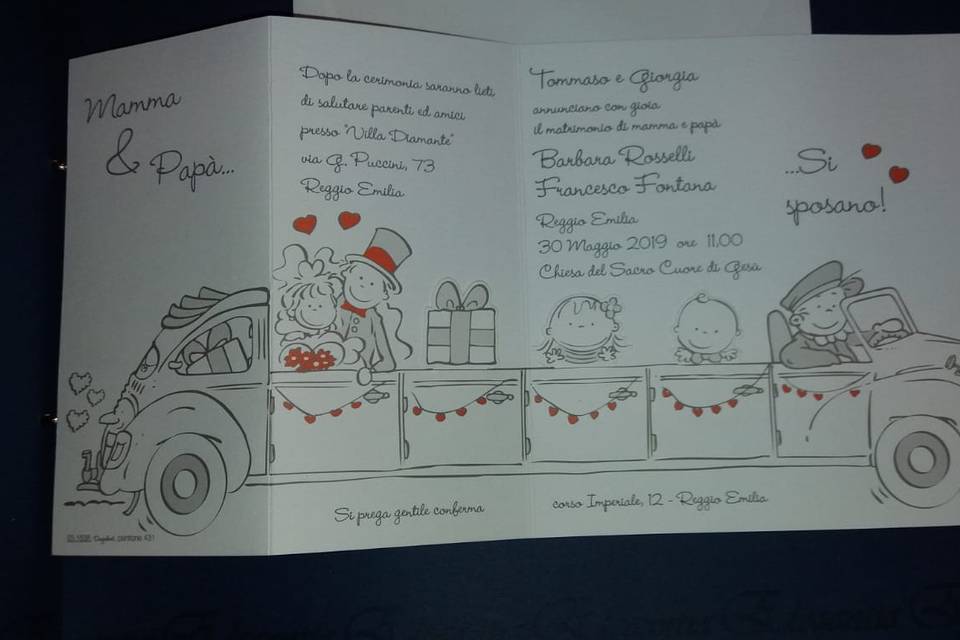 Mamma
& Papà...
Dopo la cerimonia saranno lieti
di salutare parenti ed amici
presso "Villa Diamante"
via G. Puccini, 73
Reggio Emilia
Tommaso e Giorgia
annunciano con gioia
il matrimonio di mamma e papà
Barbara Rosselli
Francesco Fontana
Reggio Emilia
30 Maggio 2019 ore 11,00
Chiesa del Sacro Cuore di Gesù
...Si
sposano!
Si prega gentile conferma
corso Imperiale, 12 - Reggio Emilia
pantone 431